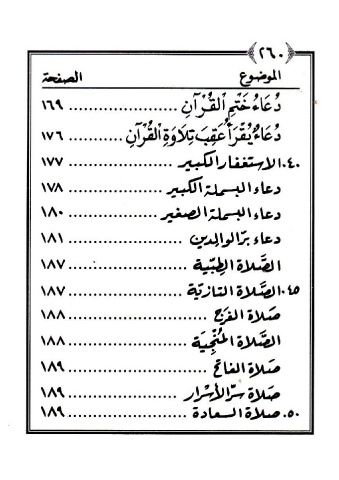 ﴿٢٦٠﴾
الموضوع الصفحة
دُعَاءُ خَتْمِ الْقُرْآنِ .................... ١٦٩
دُعَاءٌ يُقْرَأُ عَقِبَ تِلَاوَةِ الْقُرْآنِ ........... ١٧٦
٤٠. الاستغفار الكبير .................... ١٧٧
دعاء البسملة الكبير .................... ١٧٨
دعاء البسملة الصغير .................... ١٨٠
دعاء برّ الوالدين .................... ١٨١
الصَّلاة الطِبّية .................... ١٨٧
٤٥. الصَّلاة التازيّة .................... ١٨٧
صَلاة الفرَج .................... ١٨٨
الصَّلاة المُنْجِيَة .................... ١٨٨
صَلاة الفاتح .................... ١٨٩
صَلاة سرّ الأسرار .................... ١٨٩
٥٠. صَلاة السعادة .................... ١٨٩